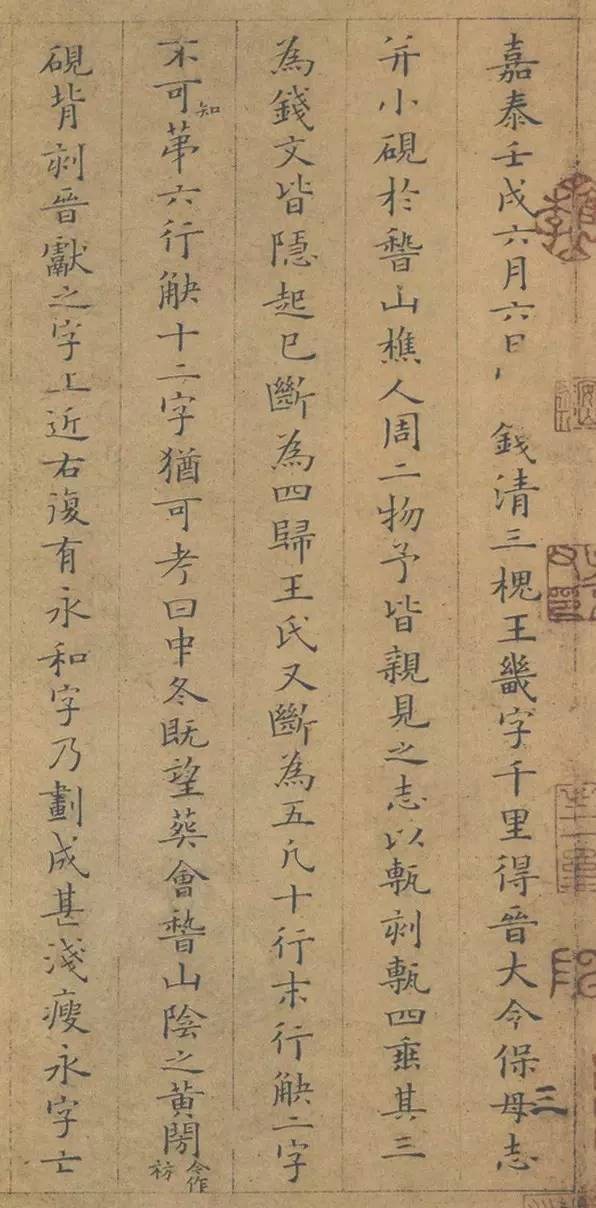 嘉泰壬戌六月六日錢清三槐王畿字千里得晉大令保母志
并小硯於稽山樵人周二物予皆親見之志以甎刻甎四垂其三
為錢文皆隱起已斷為四歸王氏又斷為五凡十行末行缺二字
不可知第六行缺十二字猶可考曰中冬既望葬會稽山陰之黃閍
合作祊
硯背刻晉獻之字上近右復有永和字乃劃成甚淺瘦永字亡
三